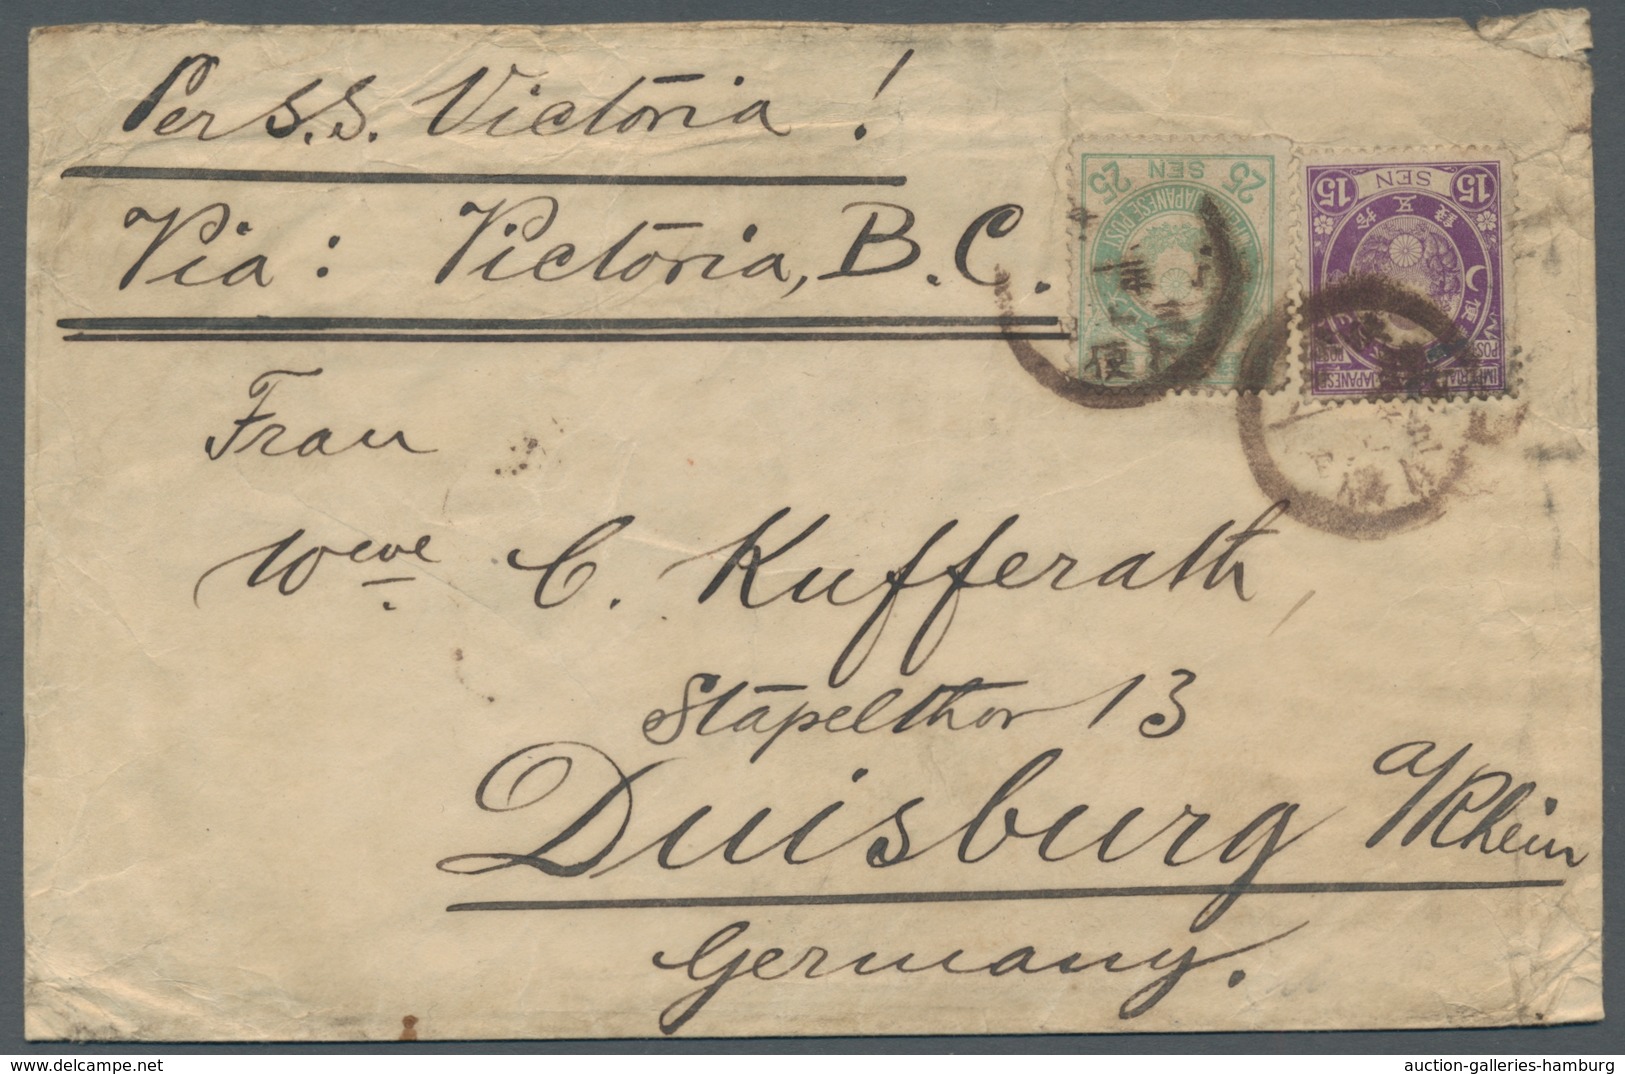 Per S.S. Victoria !
Via : Victoria, B.C.
25 SEN 25
JAPANESE POST
便
15 SEN 15
IMPERIAL JAPANESE POST
Frau
Wwe. C. Kufferath,
Stapelthor 13
Duisburg a/Rhein
Germany.
DELCAMPE.NET
auction-galleries-hamburg